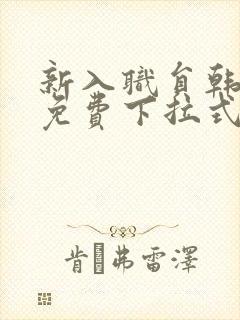 新入職員韩
免費下拉式
肯·弗雷澤